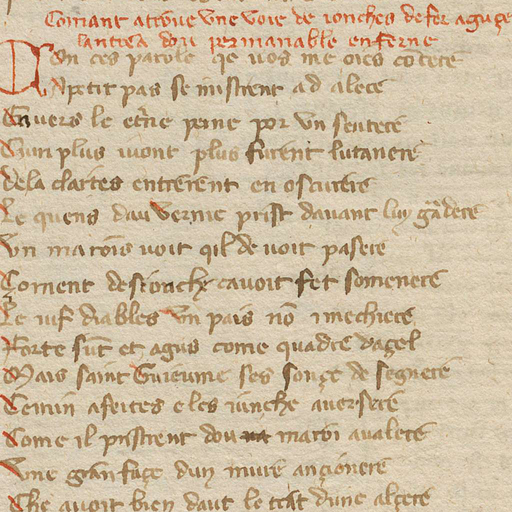 Comant a trove une voie de ionches de fer aguçe
lantrea dou permanable enferne
On ces parole qe vos me oies cōtere
A petit pas se mistrent ad alere
Envers le et̄ne peine por un sentere
Cun plus vont plus furent lutanere
De la clartes entrerent en oscurere
Le quens dau verme prist davant luy gādere
Un marois voit qil de voit pasere
Coment de stionche cavoit fet somenere
Le uif diables un pais nō imechiere
Forte sūt et agus come quadrel daçel
Mais saint Guieume ses songe de segnere
Cemin afeites e les iunche aversere
Come il pristrent dou maroi avalere
Une gran façe dun mure ançionere
Che avoit bien daut le trat dune alçere